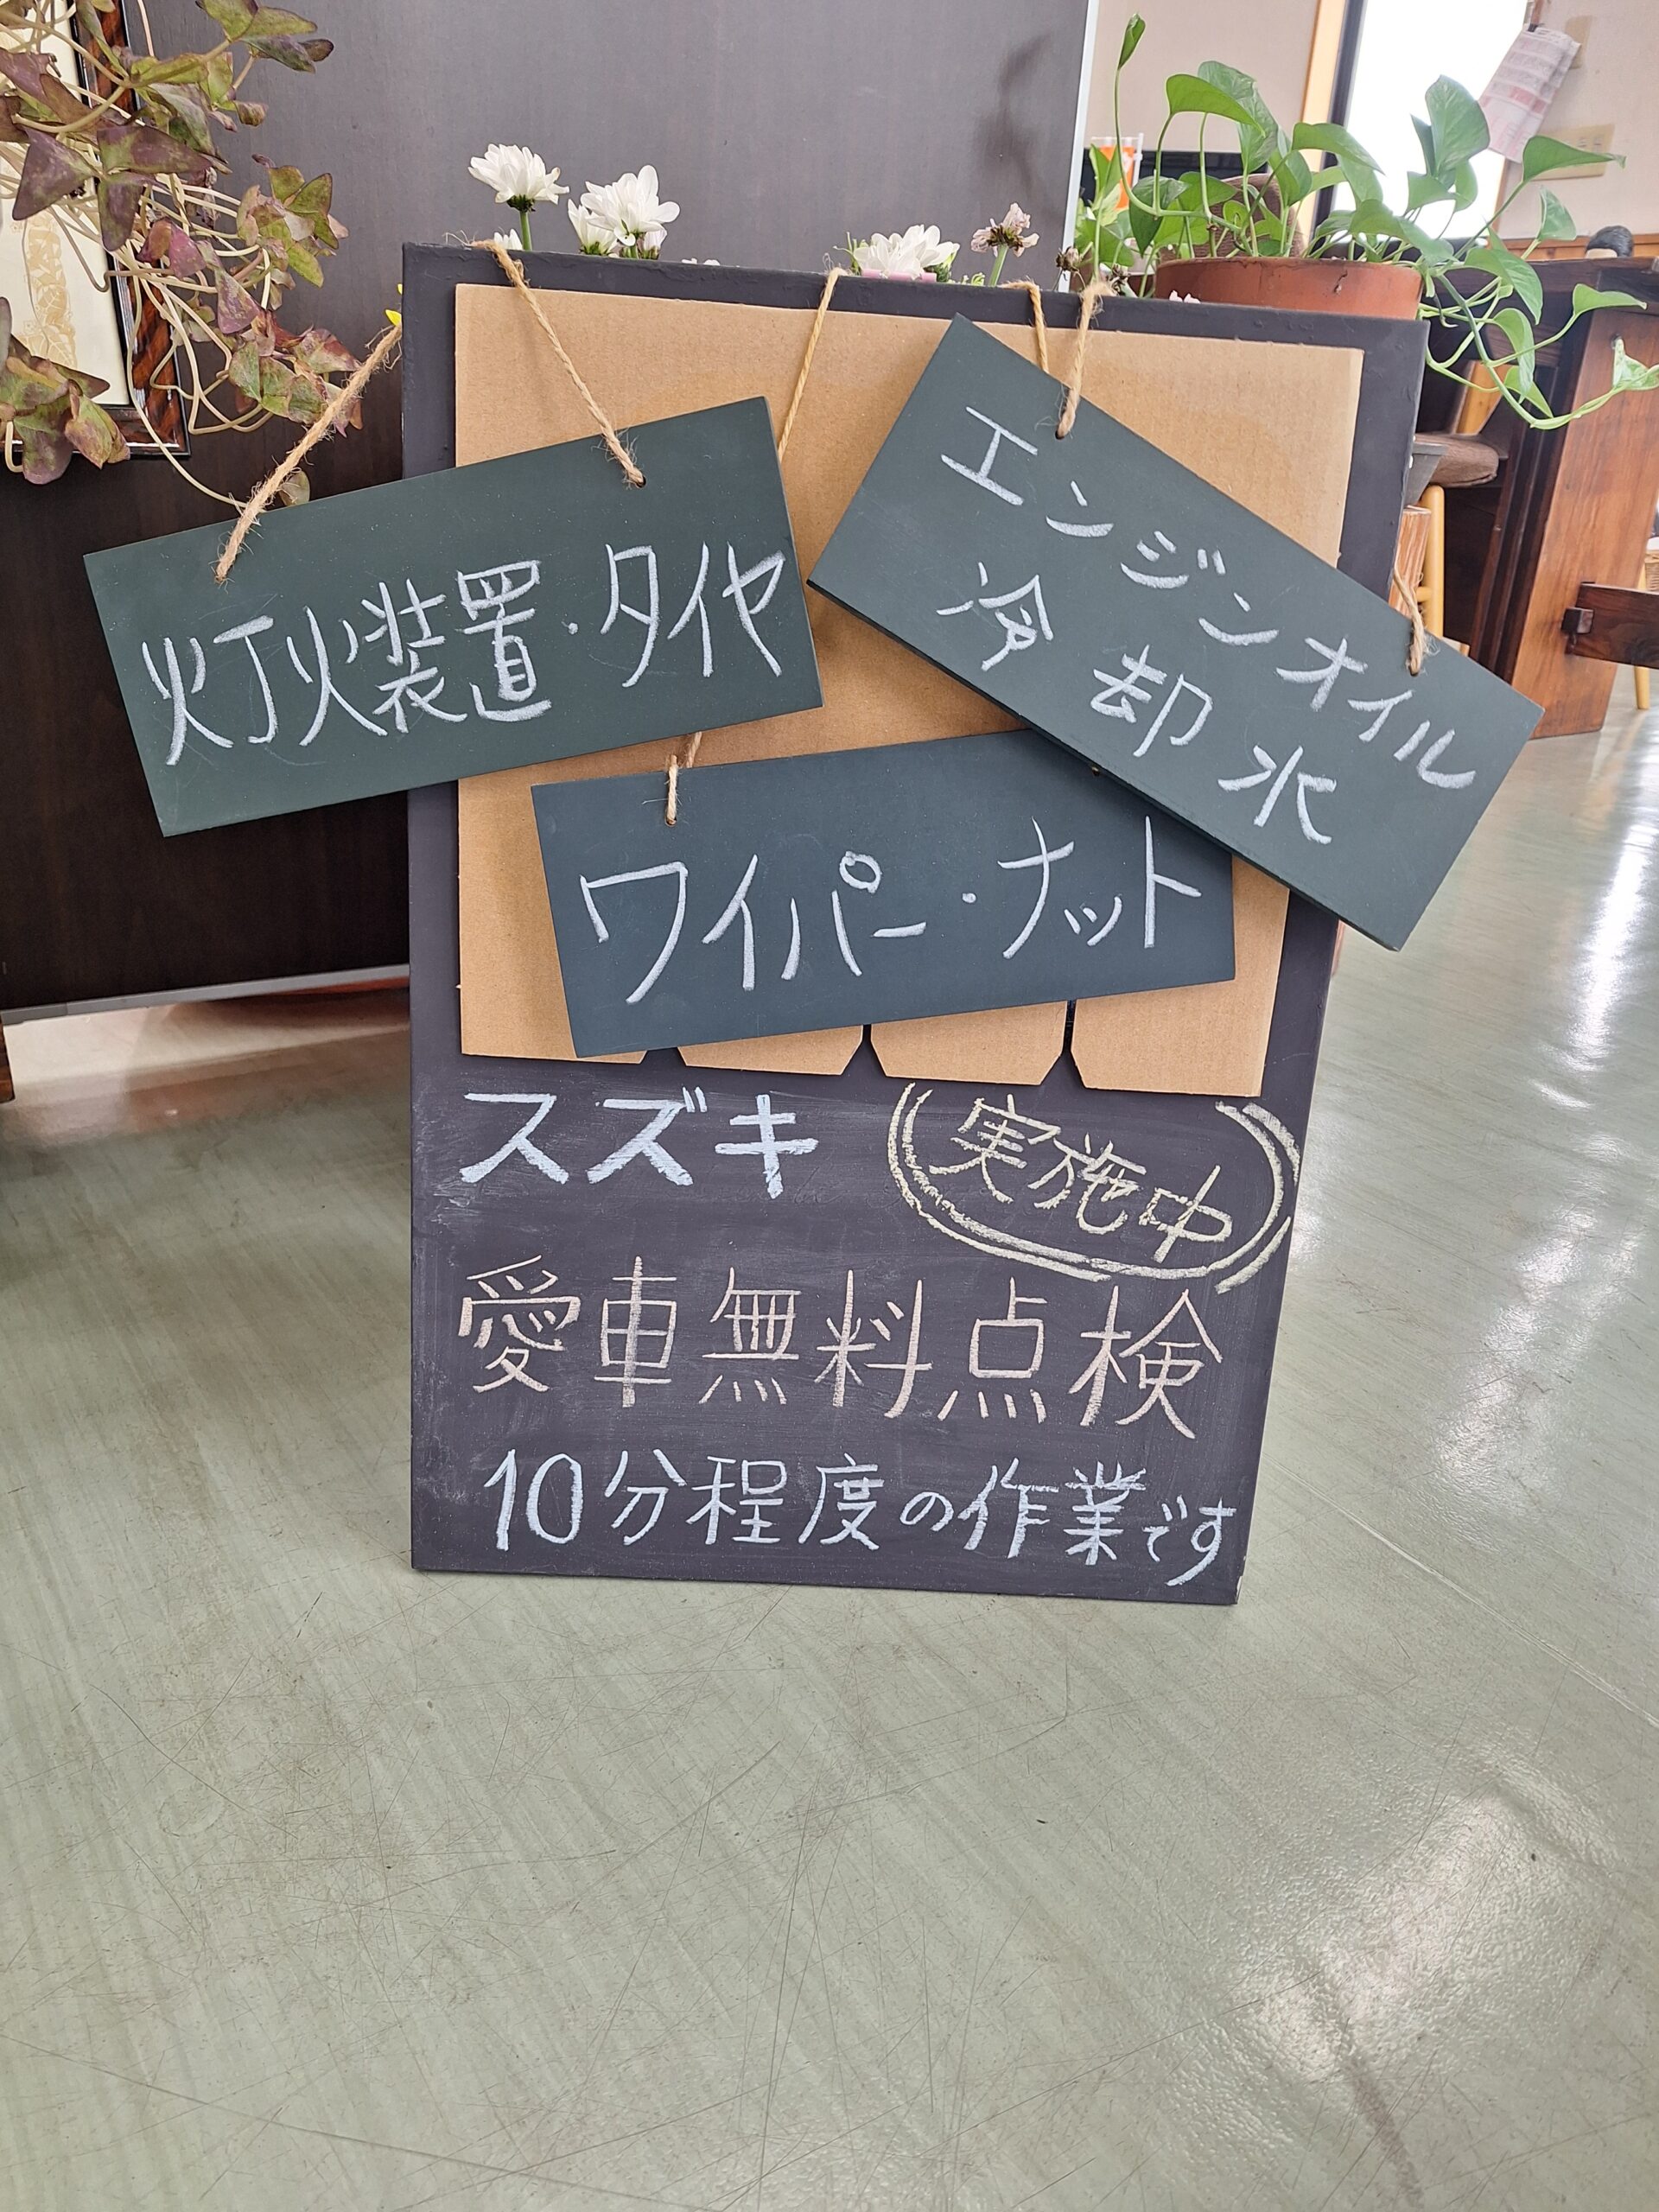 灯火装置・タイヤ
エンジンオイル
冷却水
ワイパー・ナット
スズキ
実施中
愛車無料点検
10分程度の作業です